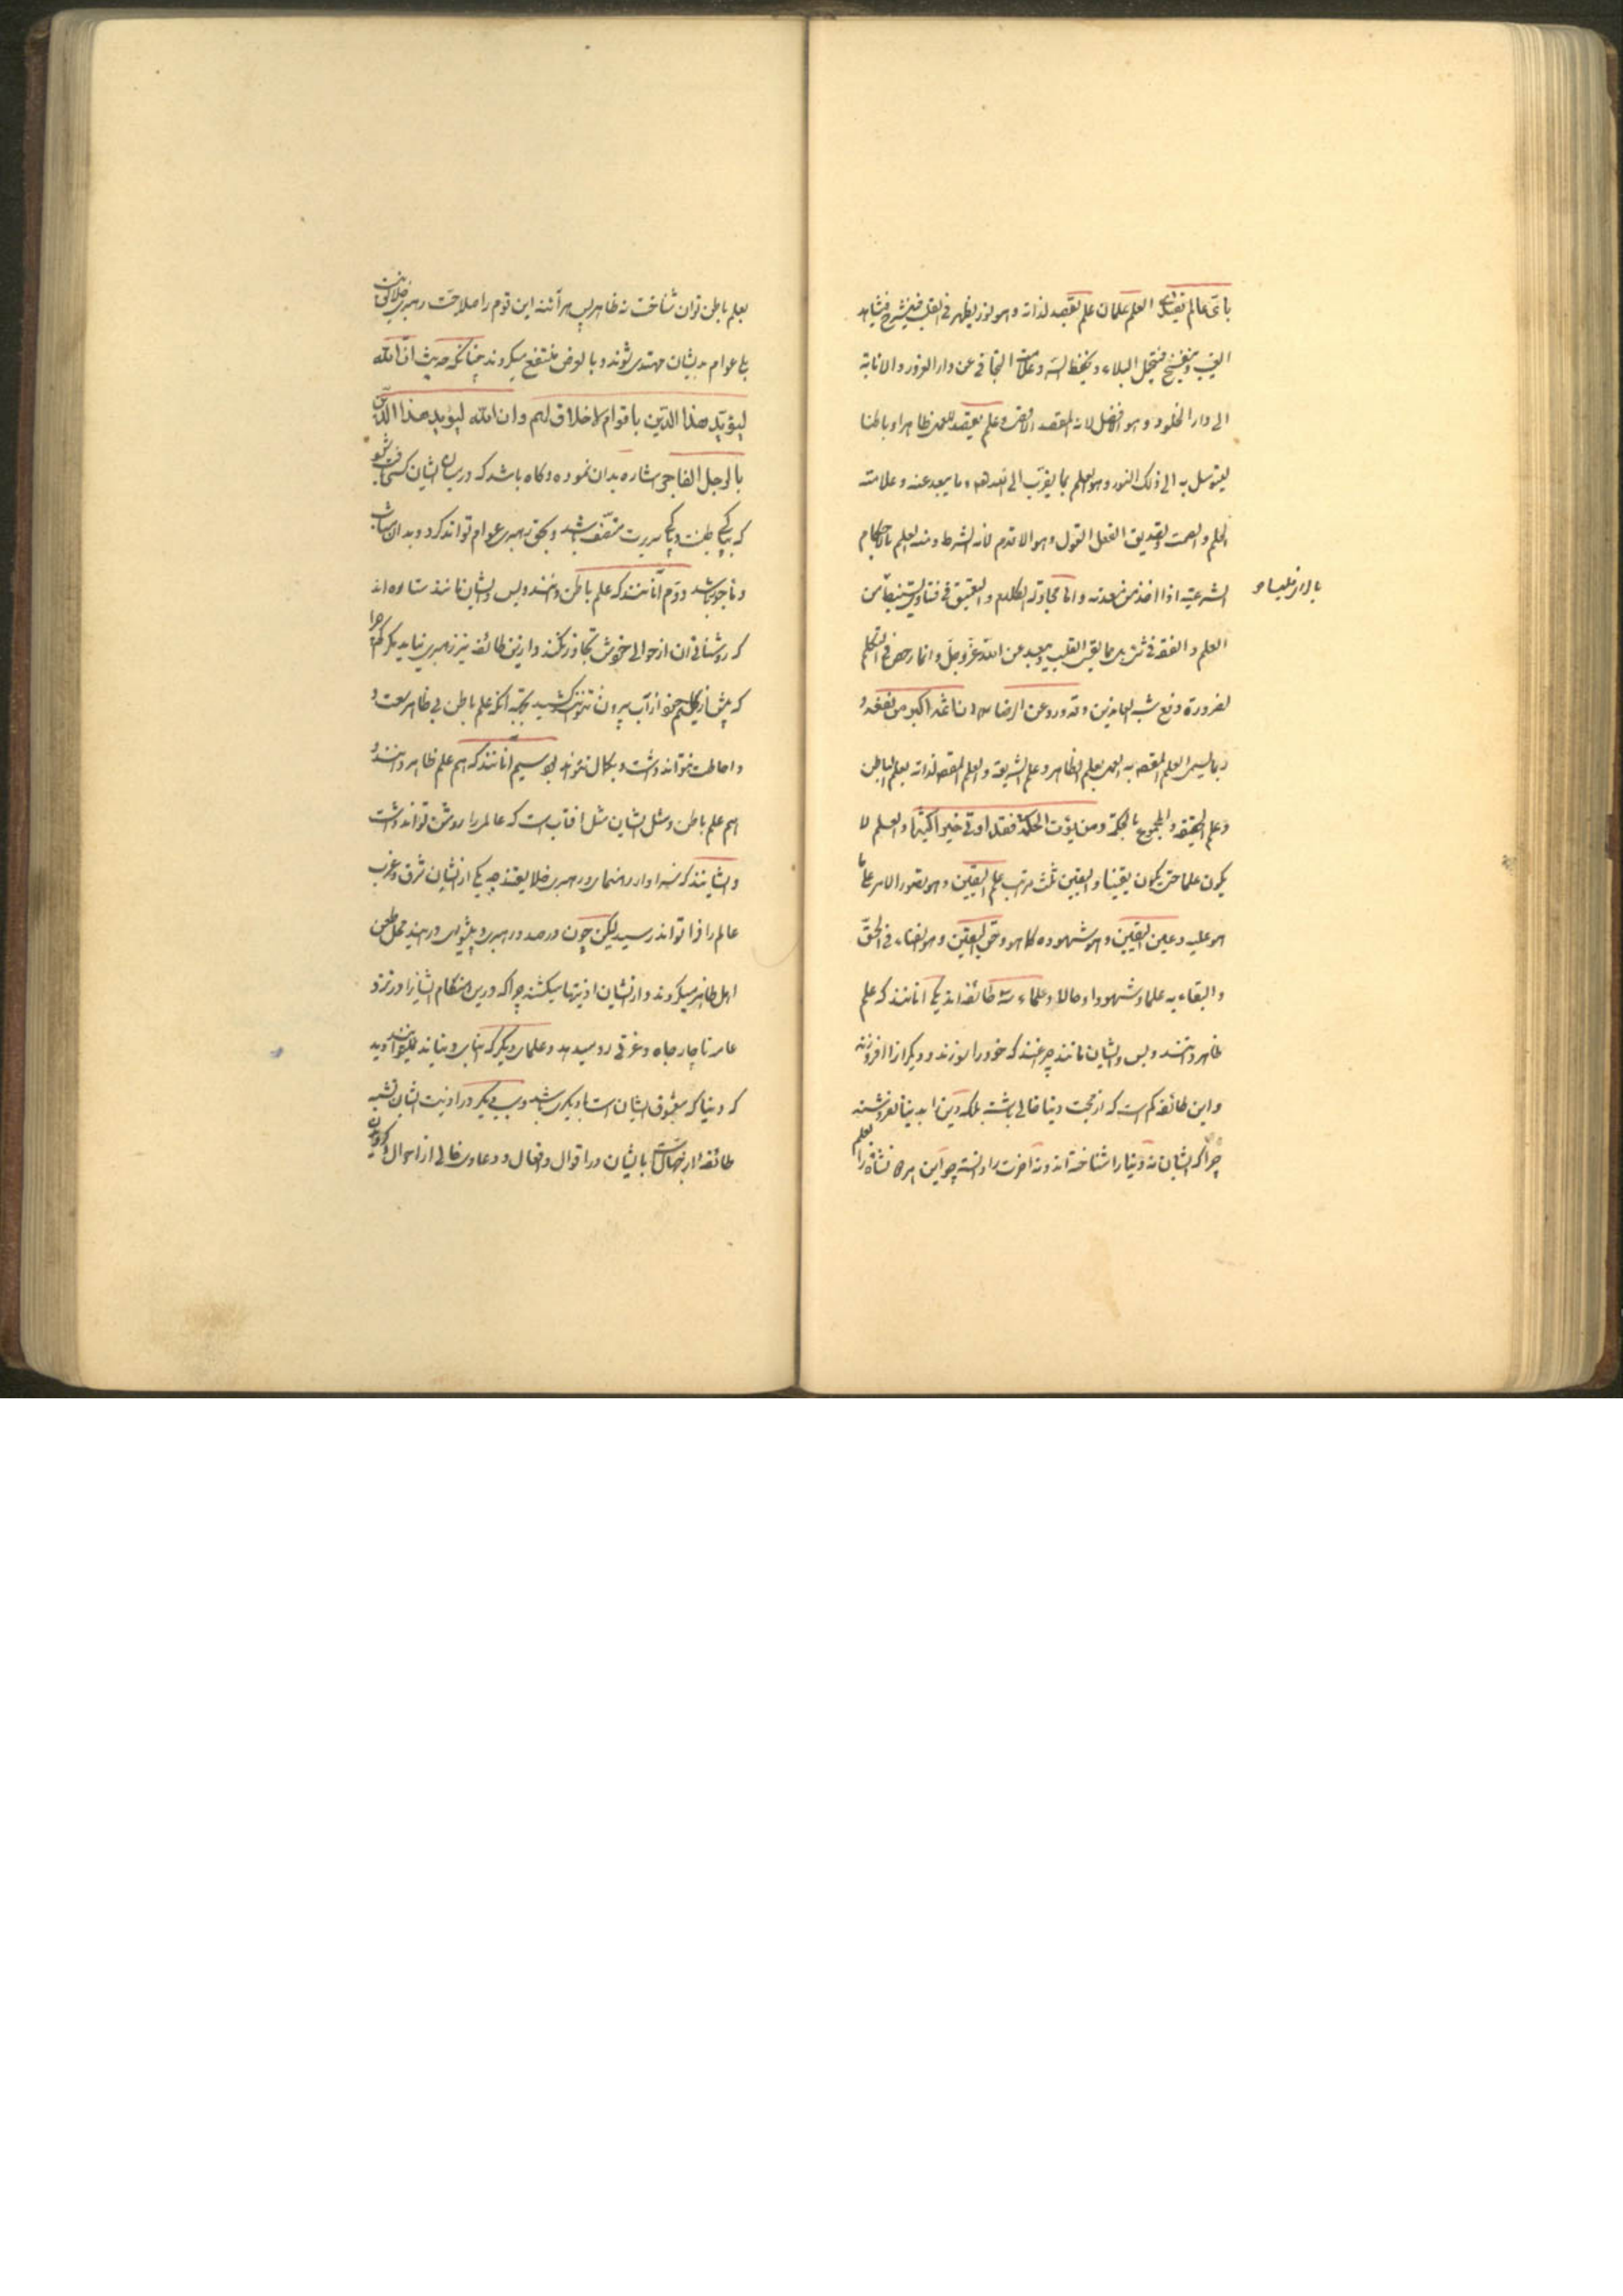 بای عالم یقتدی العلم علمان علم یقصد لذاته و هو نور یظهر فی القلب فینشرح فیشاهد
الغیب و ینفسح فیحتمل البلاء و یحفظ السر و علامته التجافی عن دار الغرور و الانابة
الی دار الخلود و هو الافضل لانه المقصد الاقصی و علم یقصد للعمل ظاهرا و باطنا
لیتوسل به الی ذلک النور و هو العلم بما یقرب الی الله و ما یبعد عنه و علامته
الحلم و الصمت و تصدیق الفعل القول و هو الاقدم لانه الشرط و منه العلم بالاحکام
الشرعیة اذا اخذ من معدنه و اما مجادلة الکلام و التعمق فی فتاوی تستنبط من
العلم و الفقه فی شیء بل مما یقسی القلب و یبعد عن الله عز و جل و انما رخص فی التکلم
لضرورة دفع شبه المعاندین و قد ورد عن الرضا اثمه اکبر من نفعه و
ربما یسمی العلم المقصد به العمل بعلم الظاهر و علم الشریعة و العلم المقصد لذاته بعلم الباطن
و علم الحقیقة و المجموع بالحکمة و من یؤت الحکمة فقد اوتی خیرا کثیرا و العلم لا
یکون علما حتی یکون یقینا و الیقین ثلث مراتب علم الیقین و هو تصور الامر علی ما
هو علیه و عین الیقین و هو شهوده کما هو و حق الیقین و هو الفناء فی الحق
و البقاء به علما و شهودا و حالا و علماء سه طائفه اند یکی آنانند که علم
ظاهر دانند و بس و ایشان مانند چرغند که خود را سوزند و دیگرانرا افروزند
و این طائفه کم است که از محبت دنیا خالی باشند بلکه دین را بدنیا بفروشند
چرا که ایشان نه دنیا را شناخته اند و نه آخرت را دانسته چو این هر دو نشأه را بعلم
بالرای
بعلم باطن توان شناخت نه ظاهر پس هر آئنه این قوم را صلاحیت رهبری خلائق نیست
بلی عوام بدیشان مهتدی شوند و بالعرض منتفع میگردند چنانکه حدیث ان الله
لیؤید هذا الدین باقوام لا خلاق لهم و ان الله لیؤید هذا الدین
بالرجل الفاجر اشاره بدان نموده و گاه باشد که در میان ایشان کسی یافت شود
که بپاکی طینت و پاکی سریرت متصف باشد و بحق رهبری عوام تواند کرد و بدان مثاب
و ماجور باشد دوم آنانند که علم باطن دانند و بس و ایشان مانند ستاره اند
که روشنائی آن از حوالی خودش تجاوز نکند و از این طائفه نیز رهبری نیاید مگر کم چرا
که بیش از گلیم خود از آب بیرون نتوانند کشید بجهة آنکه علم باطن بی ظاهر سعت و
احاطت نتواند داشت و بکمال نتواند سیم آنانند که هم علم ظاهر دانند و
هم علم باطن و مثل ایشان مثل آفتاب است که عالم را روشن تواند داشت
و ایشانند که سزاوار رهنمایی و رهبری خلایقند چه یکی از ایشان شرق و غرب
عالم را فرا تواند رسید لیکن چون در صدد رهبری و پیشوایی در آیند محل طعن
اهل ظاهر میگردند و از ایشان اذیتها میکشند چرا که در این هنگام ایشانرا در نزد
عامه ناچار جاه و عزتی رو میدهد و علمای دیگر که ابنای دنیایند نمیتوانند دید
که دنیا که معشوق ایشان است با دیگری باشد و سببی دیگر در اذیت ایشان تشبه
طائفه از ارباب جهالت است بایشان در اقوال و افعال و دعاوی خالی از احوال و گرویدن